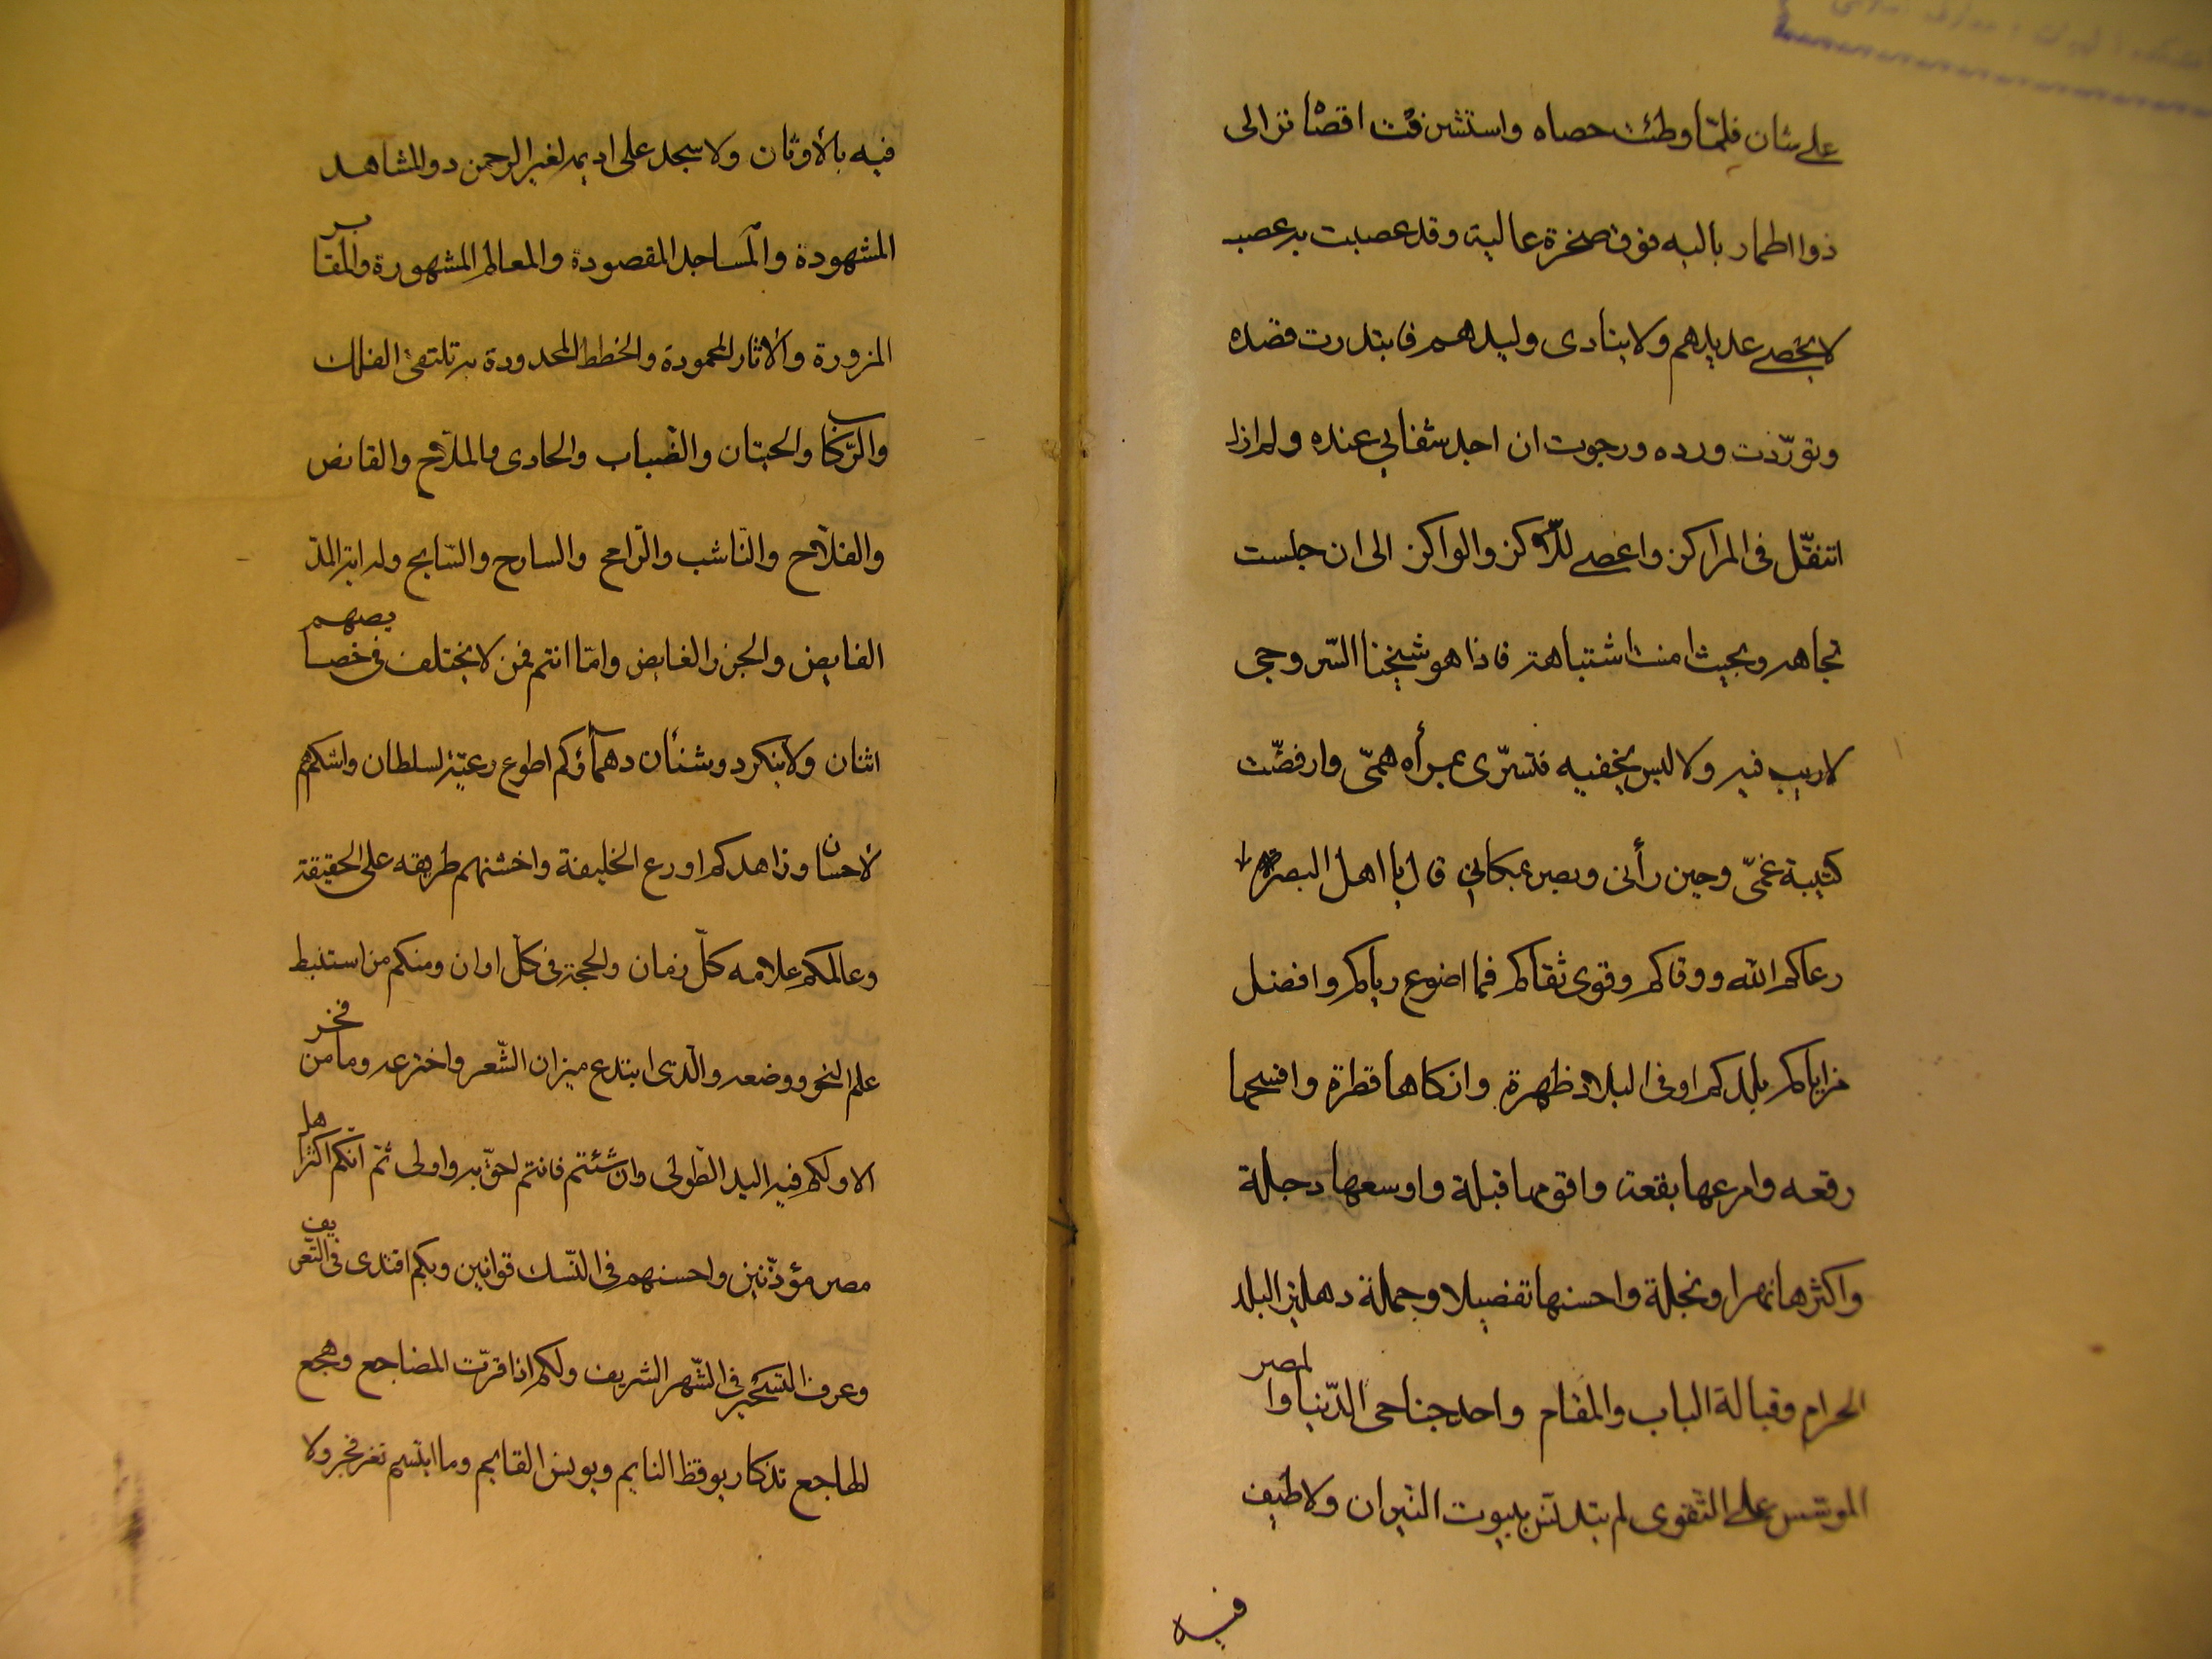 على شان فلمّا وطئت حصاه واستشرفت اقصاه تراءى
ذوا اطمار باليه فوق صخرة عالية وقد عصبت به عصب
لا يحصى عديدهم ولا ينادى وليدهم فابتدرت قصده
وتورّدت ورده ورجوت ان اجد شفايى عنده ولم ازل
اتنقّل فى المراكز واغضى للّاكز والواكز الى ان جلست
تجاهه وبحيث امنت اشتباهه فاذا هو شيخنا السّروجى
لا ريب فيه ولا لبس يخفيه فتسرّى بمرأه همّى وارفضّت
كتيبة غمّى وحين رأنى وبصر بمكانى قال يا اهل البصرة
رعاكم الله ووقاكم وقوى تقاكم فما اضوع رياكم وافضل
مزاياكم بلدكم اوفى البلاد طهرة وازكاها قطرة وافسحها
رقعه وامرعها بقعة واقومها قبلة واوسعها دجلة
واكثرها نهرا ونخلة واحسنها تفصيلا وجملة دهليز البلد
الحرام وقبالة الباب والمقام واحد جناحى الدّنيا والمصر
الموسّس على التقوى لم يتدنّس ببيوت النّيران ولا طيف
فيه
فيه بالأوثان ولا سجد على اديمه لغير الرحمن ذو المشاهد
المشهودة والمساجد المقصودة والمعالم المشهورة والمقابر
المزورة والاثار المحمودة والخطط المحدودة به تلتقى الفلك
والرّكاب والحيتان والضّباب والحادى والملاّح والقانص
والفلاّح والنّاشب والرّامح والسارح والسّابح وله اية المدّ
الفايض والجزر الغايض وامّا انتم فمن لا يختلف فى خصايصهم
اثنان ولا ينكره ذو شنأن دهمآؤكم اطوع رعيّة لسلطان واشكرهم
لاحسان وزاهدكم اورع الخليفة واحسنهم طريقه على الحقيقة
وعالمكم علامه كلّ زمان والحجة فى كلّ اوان ومنكم من استنبط
علم النحو ووضعه والّذى ابتدع ميزان الشّعر واخترعه وما من فخر
الا ولكم فيه اليد الطّولى وان شئتم فانتم احقّ به واولى ثمّ انّكم اكثر اهل
مصر مؤذّنين واحسنهم فى النّسك قوانين وبكم اقتدى فى التّعريف
وعرف التسحّير فى الشّهر الشريف ولكم اذا قرّت المضاجع وهجع
الهاجع تذكار يوقظ النايم ويونس القايم وما ابتسم ثغر فجر ولا